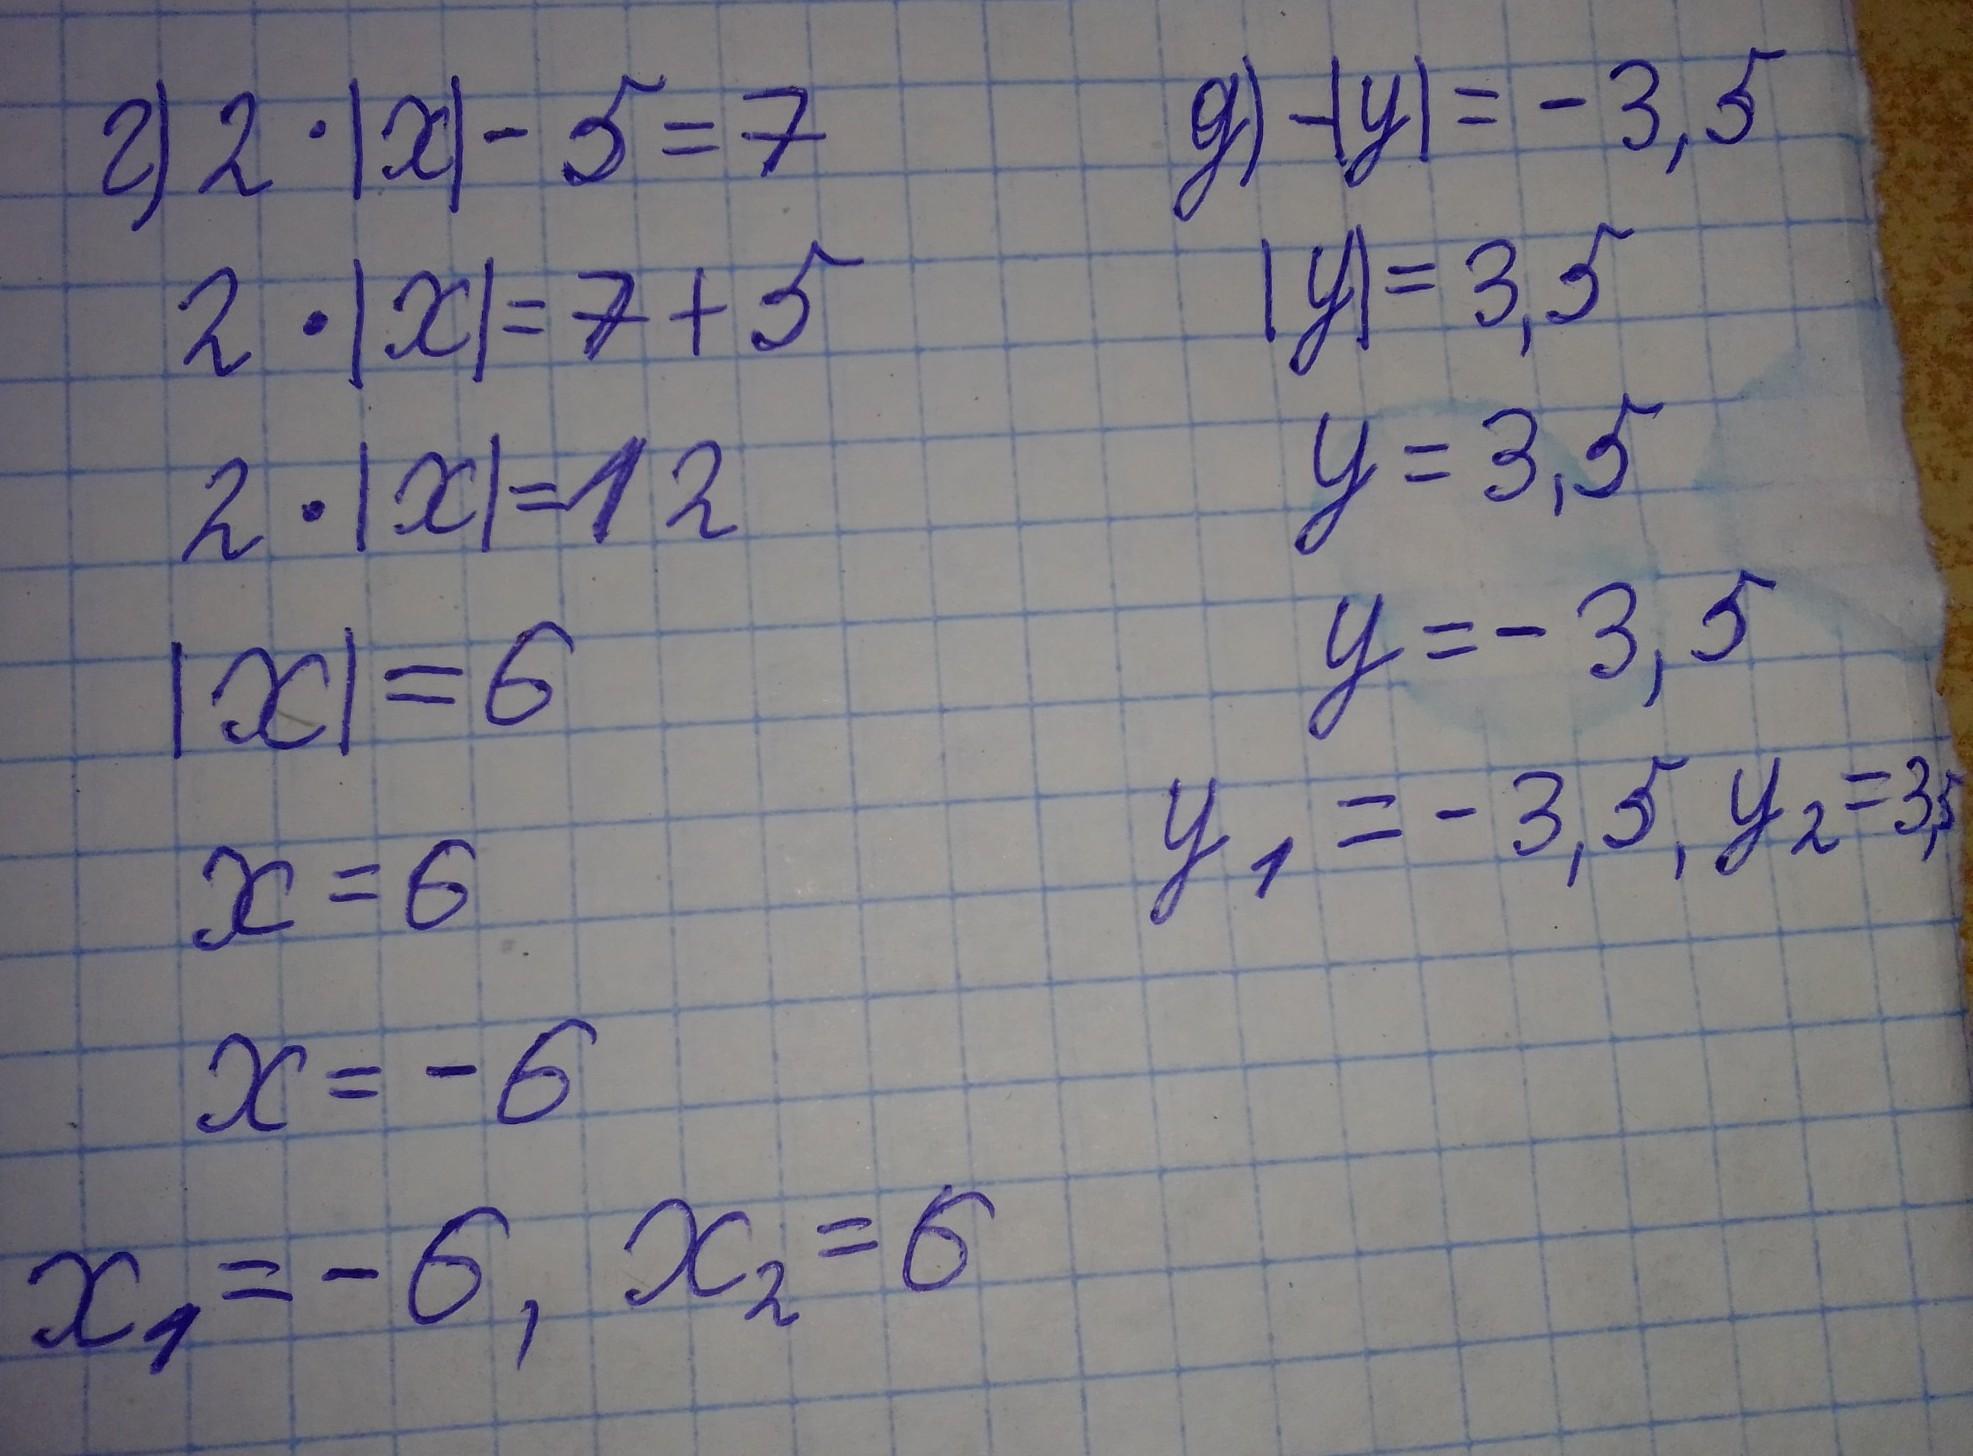 г) 2 · |x| - 5 = 7
2 · |x| = 7 + 5
2 · |x| = 12
|x| = 6
x = 6
x = -6
x₁ = -6, x₂ = 6
д) -|y| = -3,5
|y| = 3,5
y = 3,5
y = -3,5
y₁ = -3,5, y₂ = 3,5